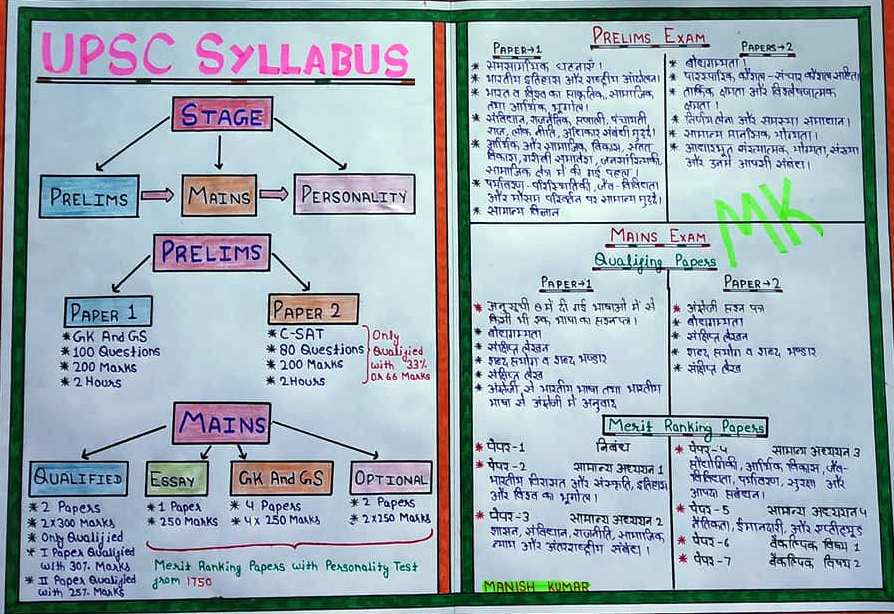 UPSC SYLLABUS
STAGE
PRELIMS
MAINS
PERSONALITY
PRELIMS
PAPER 1
* GK And GS
* 100 Questions
* 200 Marks
* 2 Hours
PAPER 2
* C-SAT
* 80 Questions
* 200 Marks
* 2 Hours
Only
Qualified
with 33%
OR 66 Marks
MAINS
QUALIFIED
* 2 Papers
* 2x300 Marks
* Only Qualified
* I Paper Qualified
with 30% Marks
* II Paper Qualified
with 25% Marks
ESSAY
* 1 Paper
* 250 Marks
GK AND GS
* 4 Papers
* 4x250 Marks
OPTIONAL
* 2 Papers
* 2x250 Marks
Merit Ranking Papers with Personality Test
from 1750
PRELIMS EXAM
PAPER→1
* समसामयिक घटनाएँ।
* भारतीय इतिहास और राष्ट्रीय आंदोलन।
* भारत व विश्व का प्राकृतिक, सामाजिक
तथा आर्थिक भूगोल।
* संविधान, राजनीतिक प्रणाली, पंचायती
राज, लोक नीति, अधिकार संबंधी मुद्दे।
* आर्थिक और सामाजिक विकास, सतत
विकास, गरीबी समावेश, जनसांख्यिकी,
सामाजिक क्षेत्र में की गई पहल।
* पर्यावरण-पारिस्थितिकी, जैव-विविधता
और मौसम परिवर्तन पर सामान्य मुद्दे।
* सामान्य विज्ञान
PAPERS→2
* बोधगम्यता।
* पारस्परिक कौशल-संचार कौशल सहित।
* तार्किक क्षमता और विश्लेषणात्मक
क्षमता।
* निर्णय लेना और समस्या समाधान।
* सामान्य मानसिक योग्यता।
* आधारभूत संख्यात्मक योग्यता, संख्या
और उनमें आपसी संबंध।
MK
MAINS EXAM
Qualifing Papers
PAPER→1
* अनुसूची 8 में दी गई भाषाओं में से
किसी भी एक भाषा का प्रश्नपत्र।
* बोधगम्यता
* संक्षिप्त लेखन
* शब्द प्रयोग व शब्द भण्डार
* संक्षिप्त लेख
* अंग्रेजी से भारतीय भाषा तथा भारतीय
भाषा से अंग्रेजी में अनुवाद
PAPER→2
* अंग्रेजी प्रश्न पत्र
* बोधगम्यता
* संक्षिप्त लेखन
* शब्द प्रयोग व शब्द भण्डार
* संक्षिप्त लेख
Merit Ranking Papers
* पेपर-1 निबंध
* पेपर-2 सामान्य अध्ययन 1
भारतीय विरासत और संस्कृति, इतिहास
और विश्व का भूगोल।
* पेपर-3 सामान्य अध्ययन 2
शासन, संविधान, राजनीति, सामाजिक
न्याय और अंतराष्ट्रीय संबंध।
* पेपर-4 सामान्य अध्ययन 3
प्रौद्योगिकी, आर्थिक विकास, जैव-
विविधता, पर्यावरण, सुरक्षा और
आपदा प्रबंधन।
* पेपर-5 सामान्य अध्ययन 4
नैतिकता, ईमानदारी, और एप्टीट्यूड
* पेपर-6 वैकल्पिक विषय 1
* पेपर-7 वैकल्पिक विषय 2
MANISH KUMAR